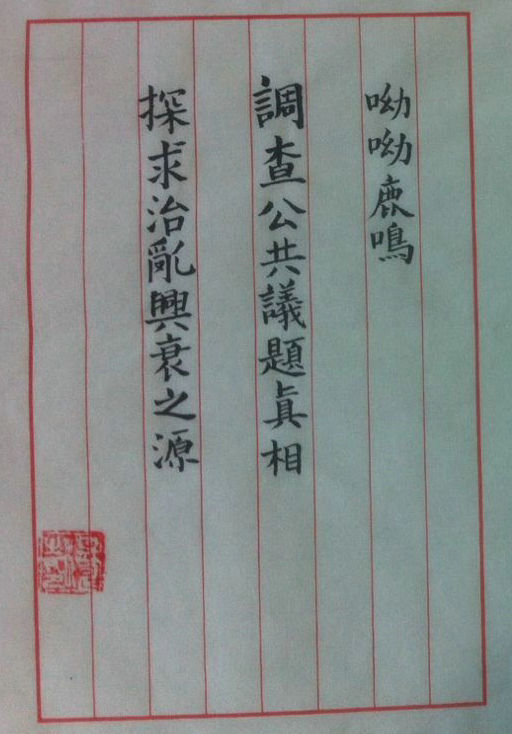 呦呦鹿鳴
調查公共議題真相
探求治亂興衰之源